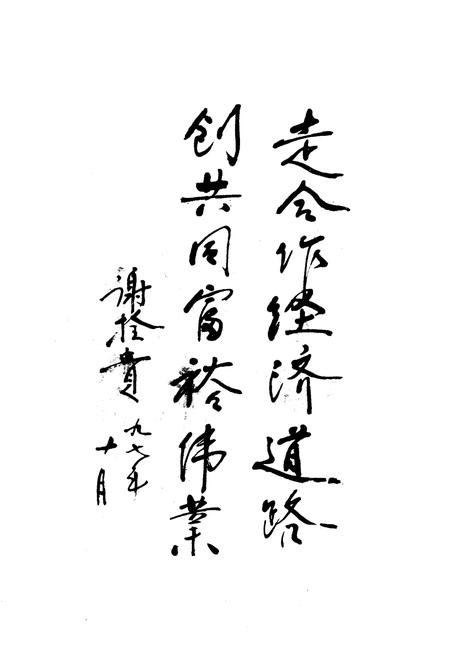 走合作经济道路
创共同富裕伟業
谢拴貴
九七年
十月